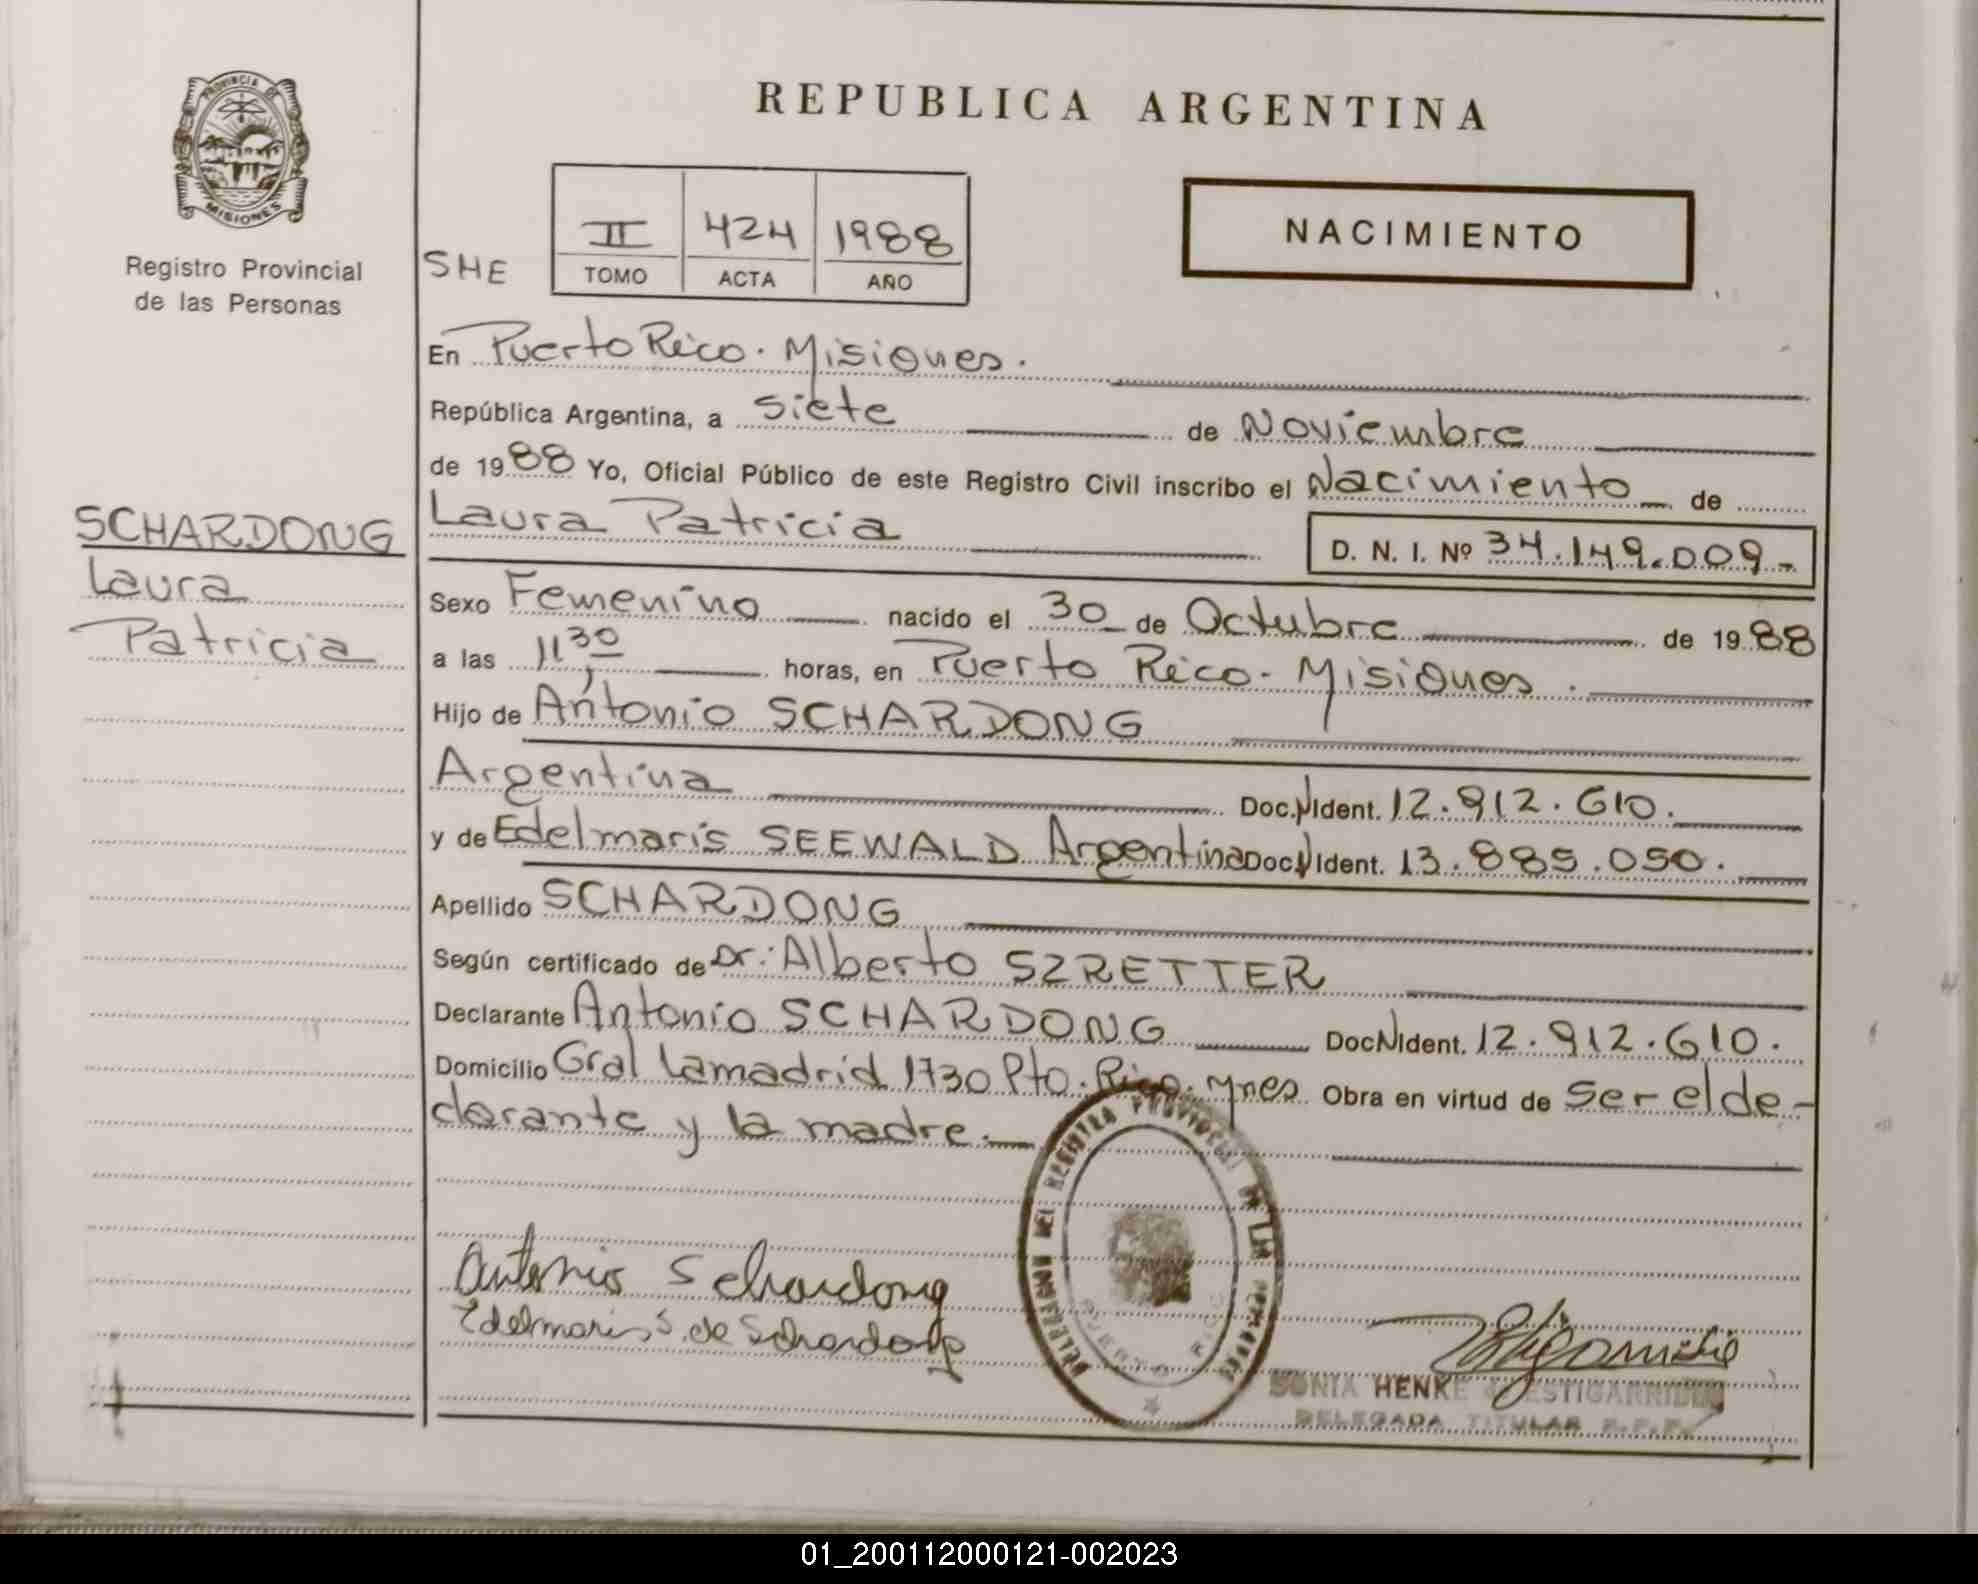 REPUBLICA ARGENTINA
PROVINCIA DE
MISIONES
Registro Provincial
de las Personas
SHE
II 424 1988
TOMO ACTA AÑO
NACIMIENTO
En Puerto Rico. Misiones.
República Argentina, a siete de Noviembre
de 1988 Yo, Oficial Público de este Registro Civil inscribo el Nacimiento de
SCHARDONG
Laura
Patricia
Laura Patricia
D. N. I. Nº 34.149.009.-
Sexo Femenino nacido el 30 de Octubre de 1988
a las 11,30 horas, en Puerto Rico. Misiones.
Hijo de Antonio SCHARDONG
Argentina Doc.N Ident. 12.912.610.
y de Edelmaris SEEWALD Argentina Doc.N Ident. 13.885.050.
Apellido SCHARDONG
Según certificado de Dr. Alberto SZRETTER
Declarante Antonio SCHARDONG Doc N Ident. 12.912.610.
Domicilio Gral Lamadrid 1730 Pto. Rico. Mnes. Obra en virtud de ser el de-
clarante y la madre.
DELEGACION DEL REGISTRO PROVINCIAL DE LAS PERSONAS
PUERTO RICO
Antonio Schardong
Edelmaris S. de Schardong
SONIA HENKE
DELEGADA TITULAR
01_200112000121-002023